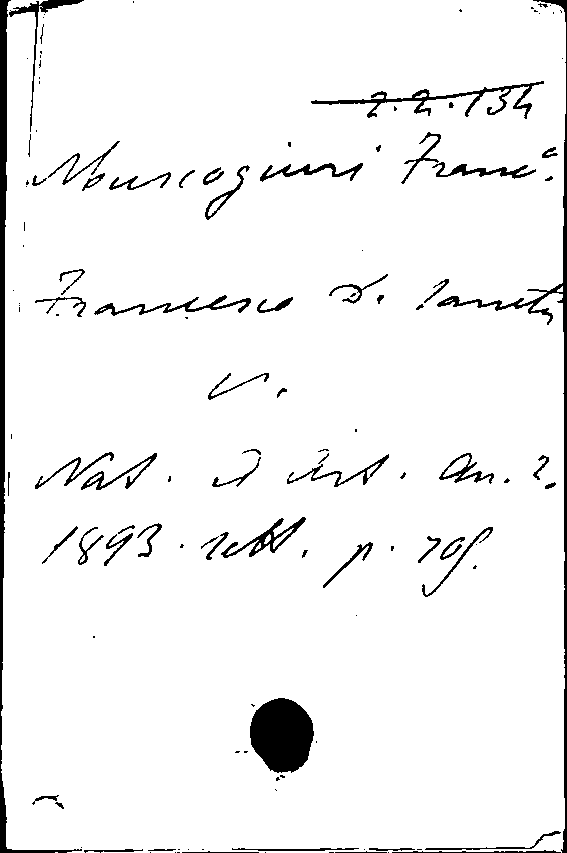 2.2.134
Muscogiuri Franc.o
Francesco D. Sanctis
v.
Nat. ed Art. An. 2.
1893. sett. p. 705.